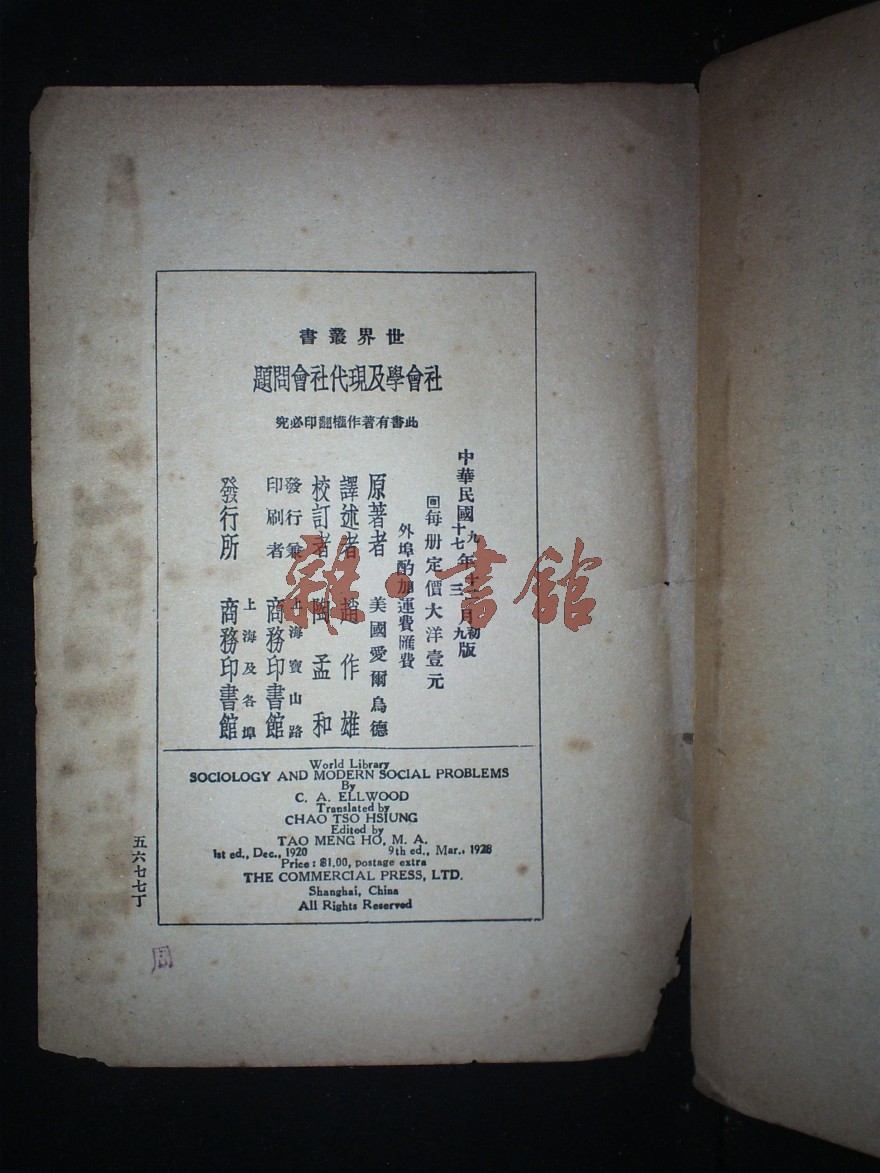 世界叢書
社會學及現代社會問題
此書有著作權翻印必究
中華民國九年十二月初版
十七年三月九版
每册定價大洋壹元
外埠酌加運費匯費
原著者 美國愛爾烏德
譯述者 趙作雄
校訂者 陶孟和
發行兼印刷者 上海寶山路商務印書館
發行所 上海及各埠商務印書館
World Library
SOCIOLOGY AND MODERN SOCIAL PROBLEMS
By
C. A. ELLWOOD
Translated by
CHAO TSO HSIUNG
Edited by
TAO MENG HO, M. A.
1st ed., Dec., 1920 9th ed., Mar., 1928
Price : $1.00, postage extra
THE COMMERCIAL PRESS, LTD.
Shanghai, China
All Rights Reserved
五六七七丁
周
雜·書館